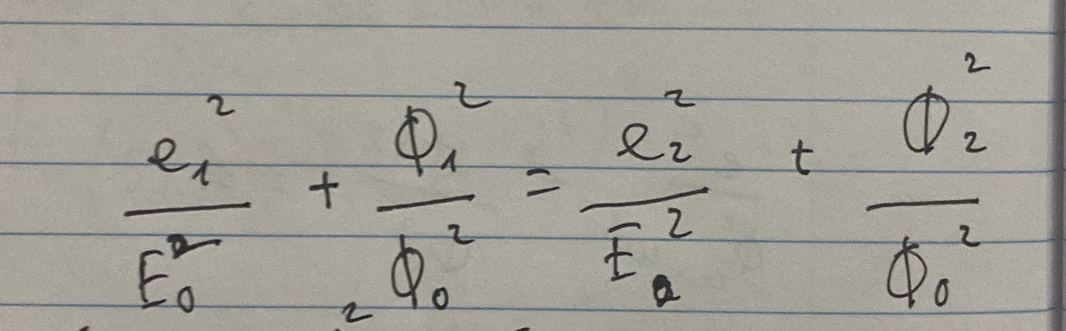 e₁²/E₀² + Φ₁²/Φ₀² = e₂²/E₀² + Φ₂²/Φ₀²
2